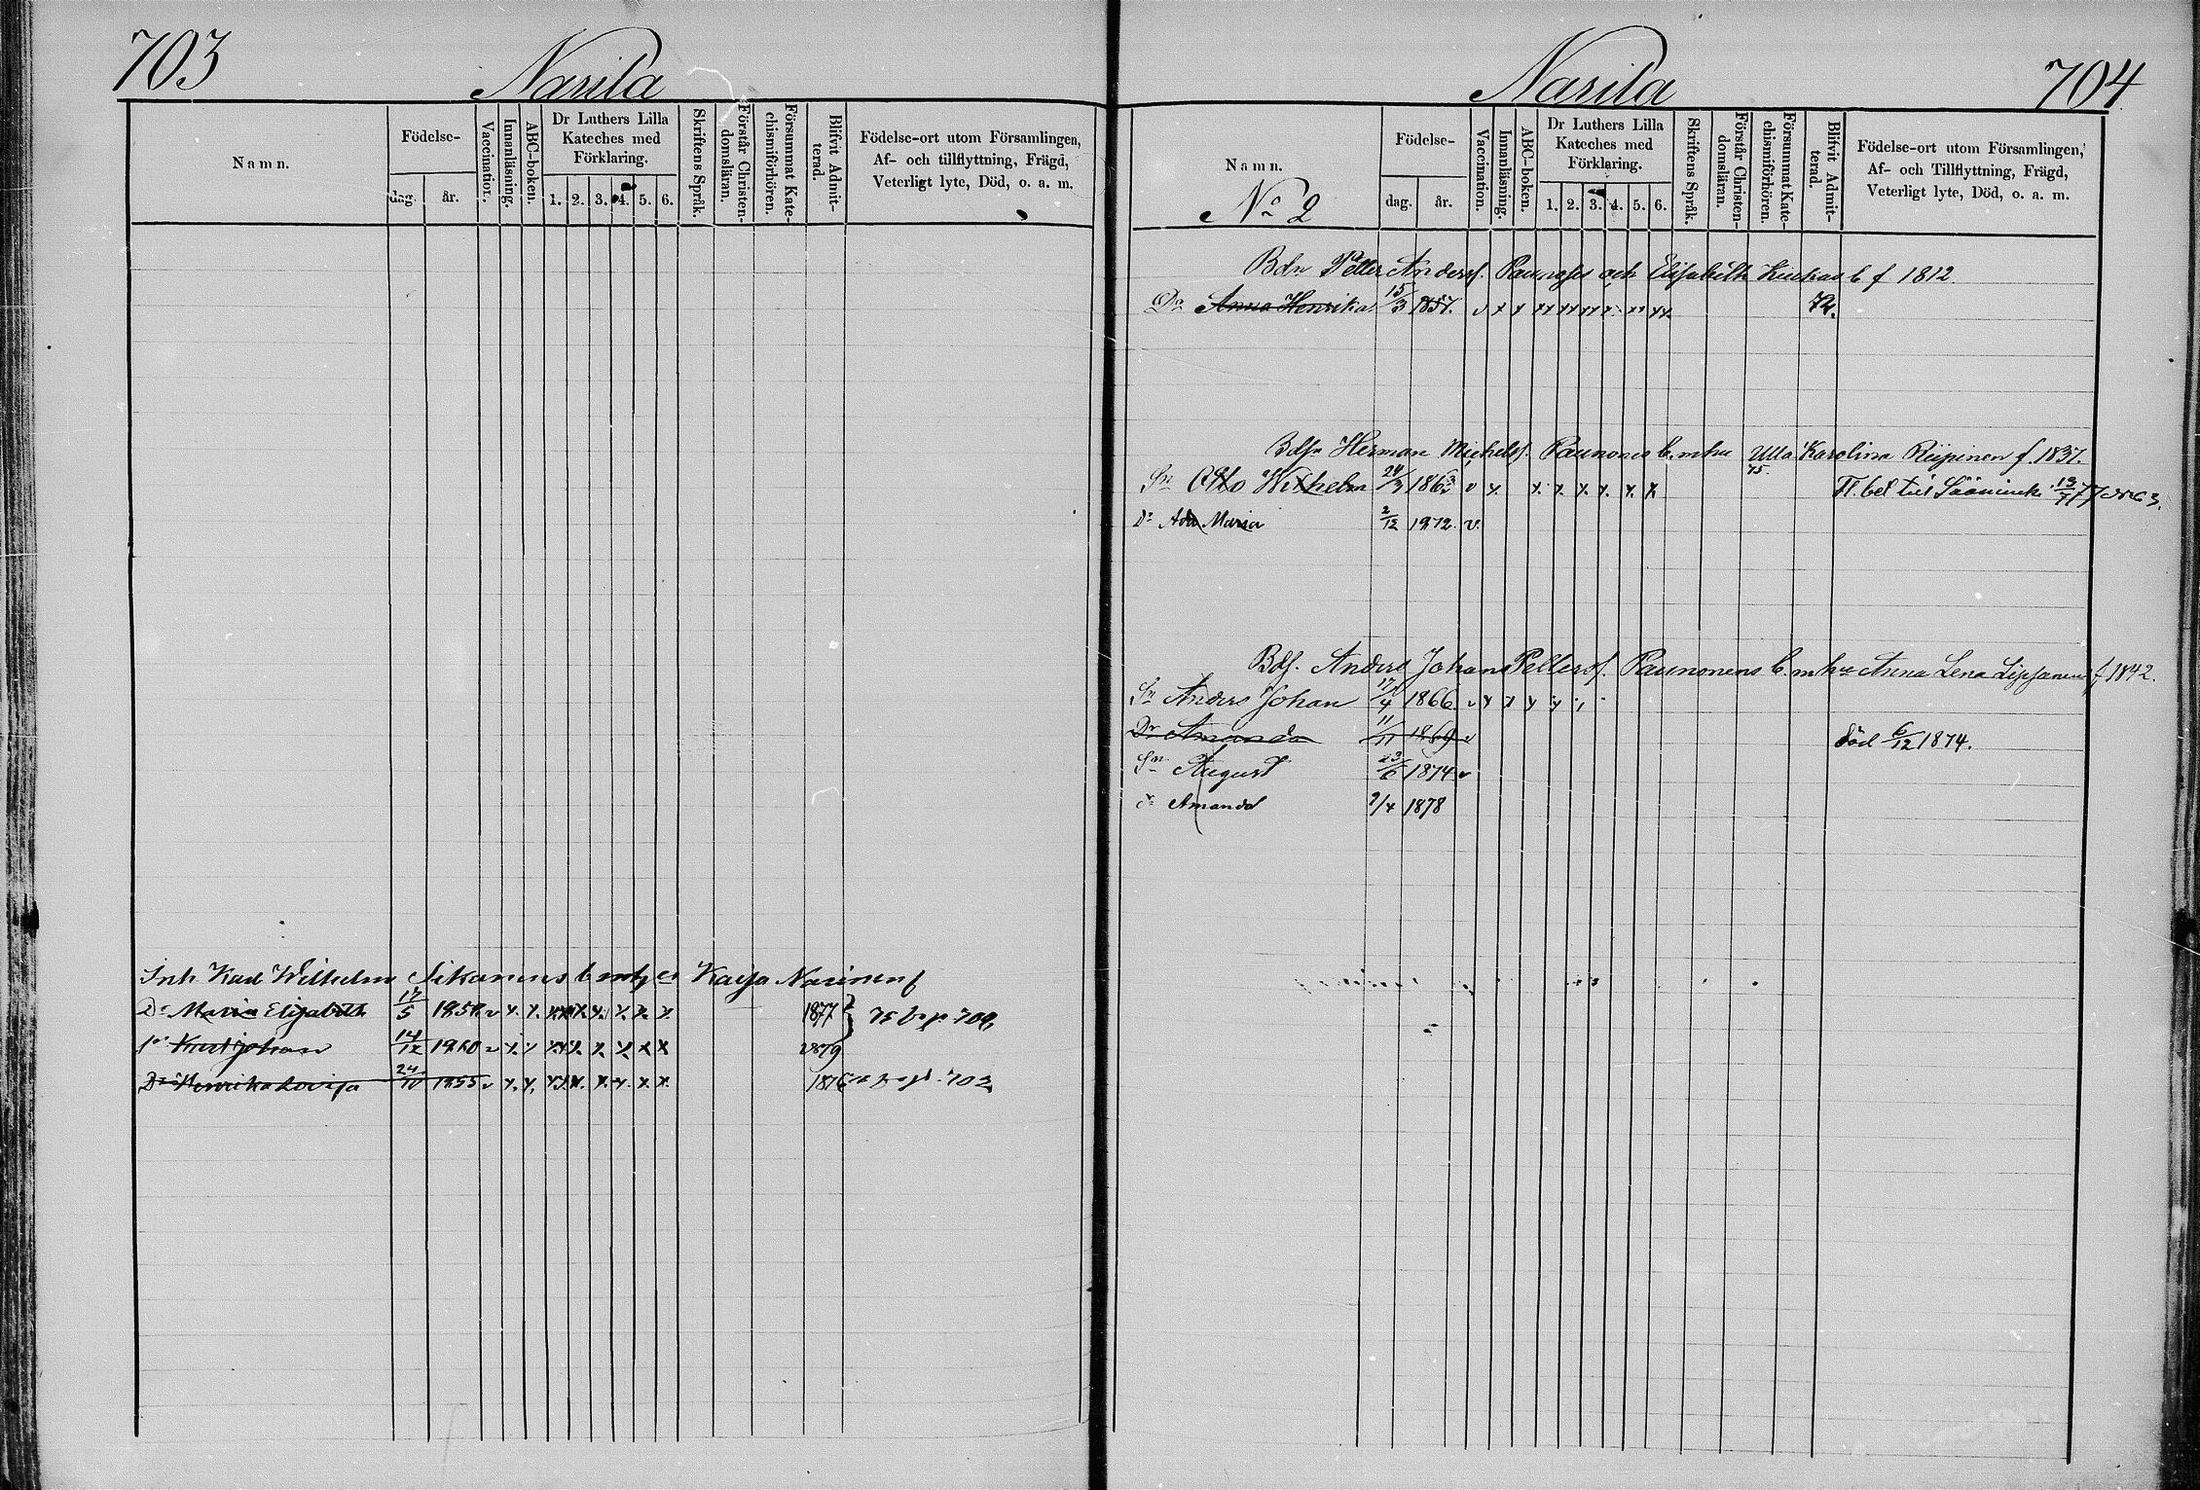 703
Narila
Namn.
Födelse-
dag. år.
Vaccination.
Innanläsning.
ABC-boken.
Dr Luthers Lilla
Kateches med
Förklaring.
1. 2. 3. 4. 5. 6.
Skriftens Språk.
Förstår Christen-
domsläran.
Försummat Kate-
chismiförhören.
Blifvit Admit-
terad.
Födelse-ort utom Församlingen,
Af- och tillflyttning, Frägd,
Veterligt lyte, Död, o. a. m.
Inh. Karl Wilhelm Sikanens b. Kaisa Narinen f
Dr Maria Elisabeth 17/5 1857 v x x 1877
Sn Karl Johan 14/12 1860 v x x x x x x 1879
Dr Henrika Lovisa 24/10 1855 v x x x x x x 1876
Narila
704
Namn.
No 2
Födelse-
dag. år.
Vaccination.
Innanläsning.
ABC-boken.
Dr Luthers Lilla
Kateches med
Förklaring.
1. 2. 3. 4. 5. 6.
Skriftens Språk.
Förstår Christen-
domsläran.
Försummat Kate-
chismiförhören.
Blifvit Admit-
terad.
Födelse-ort utom Församlingen,
Af- och Tillflyttning, Frägd,
Veterligt lyte, Död, o. a. m.
Bdn Petter Anderss. och Elisabeth b f 1812
Dr Anna Henrika 15/3 1857. v x x xx xx xx x xx 74.
Bdsn Herman Michelss. Paunonens b. m hu Ulla Karolina Riipinen f. 1837.
Sn Otto Wilhelm 24/3 v x x x x x x x 75. Fl. bet till Sääminki 13/7 77
Dr Ada Maria 2/12 1872. v.
Bdf. Anders Johans Petterss. Paunonens b. m hu Anna Lena f. 1842.
Sn Anders Johan 17/4 1866. v x x x x
Dr Amanda 11/11 1869 v död 6/12 1874.
Sn August 23/6 1874 v
dr Amanda 2/4 1878